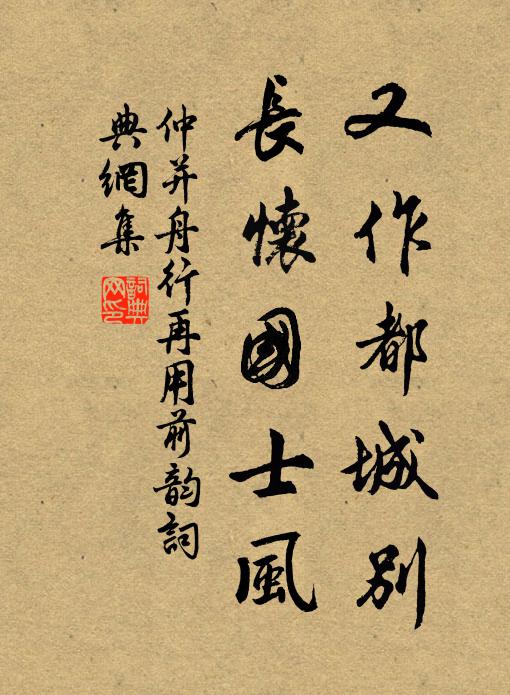 又作都城別
長懷國士風
仲并舟行再用前韵詞
典網集
詞典網印